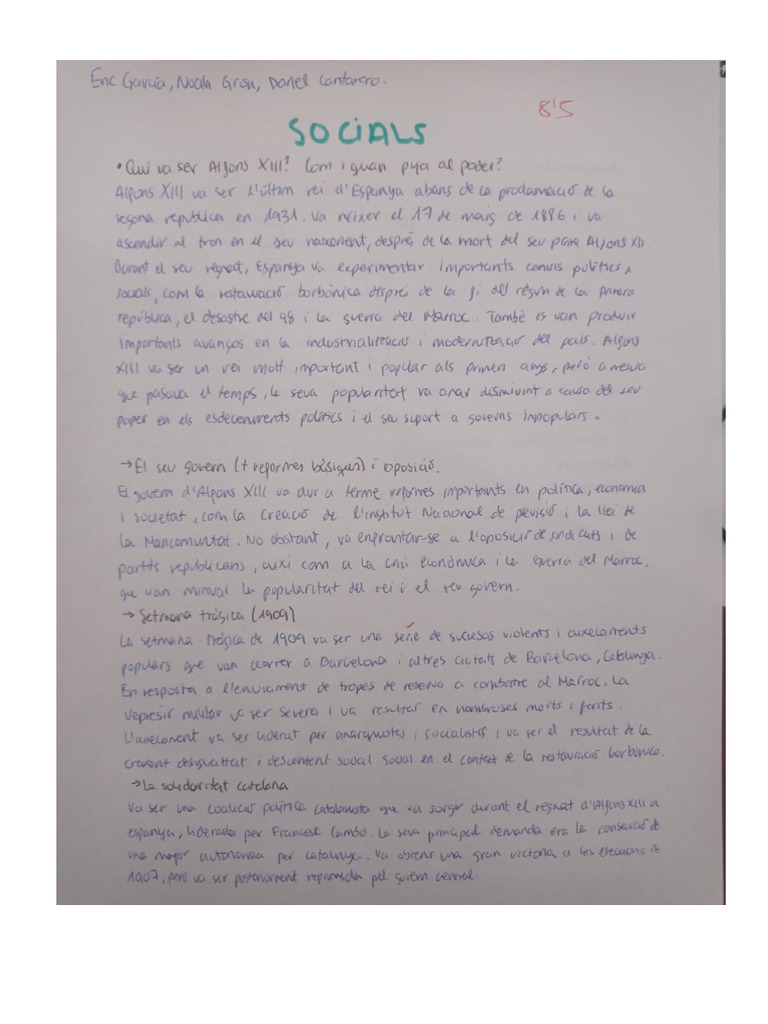 Eric García, Noah Grau, Daniel Cantarero.
8'5
SOCIALS
• Qui va ser Alfons XIII? Com i quan puja al poder?
Alfons XIII va ser l'últim rei d'Espanya abans de la proclamació de la
segona república en 1931. Va néixer el 17 de maig de 1886 i va
ascendir al tron en el seu naixement, després de la mort del seu pare Alfons XII.
Durant el seu regnat, Espanya va experimentar importants canvis polítics,
socials, com la restauració borbònica després de la fi del règim de la Primera
república, el desastre del 98 i la guerra del Marroc. També es van produir
importants avanços en la industrialització i modernització del país. Alfons
XIII va ser un rei molt important i popular als primers anys, però a mesura
que passava el temps, la seva popularitat va anar disminuint a causa del seu
paper en els esdeveniments polítics i el seu suport a governs impopulars.
→ El seu govern (+ reformes bàsiques) i oposició.
El govern d'Alfons XIII va dur a terme reformes importants en política, economia
i societat, com la creació de l'institut Nacional de previsió i la llei de
la Mancomunitat. No obstant, va enfrontar-se a l'oposició de sindicats i de
partits republicans, així com a la crisi econòmica i la Guerra del Marroc,
que van minvar la popularitat del rei i el seu govern.
→ Setmana tràgica (1909)
La setmana tràgica de 1909 va ser una serie de sucesos violents i aixecaments
populars que van ocorrer a Barcelona i altres ciutats de Barcelona, Catalunya.
En resposta a l'enviament de tropes de reserva a combatre al Marroc. La
repressió militar va ser severa i va resultar en nombroses morts i ferits.
L'aixecament va ser liderat per anarquistes i socialistes i va ser el resultat de la
creixent desigualtat i descontent social social en el context de la restauració borbònica.
→ La solidaritat catalana
Va ser una coalició política catalanista que va sorgir durant el regnat d'Alfons XIII a
espanya, liderada per Francesc Cambó. La seva principal demanda era la consecució de
una major autonomia per catalunya. Va obtenir una gran victoria a les eleccions de
1907, però va ser posteriorment reprimida pel govern central.